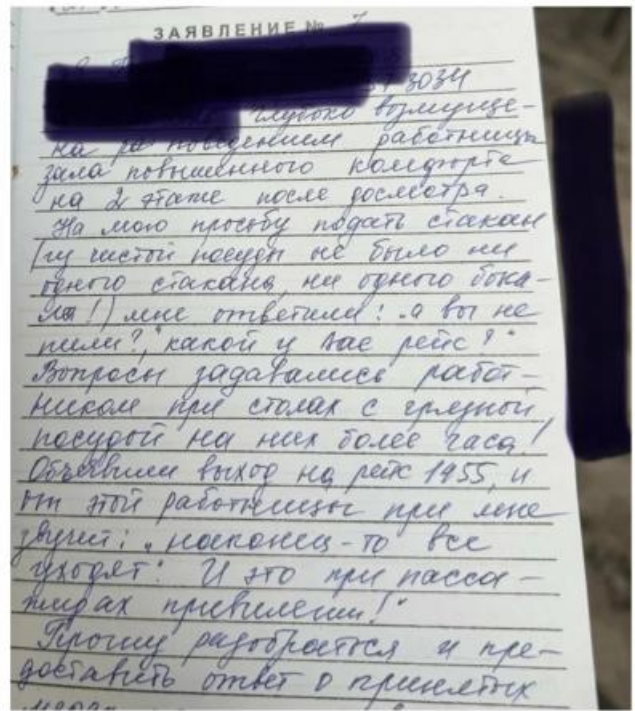 ЗАЯВЛЕНИЕ №
глубоко возмуще-
на поведением работницы
зала повышенного комфорта
на 2 этаже после досмотра.
На мою просьбу подать стакан
(из чистой посуды не было ни
одного стакана, ни одного бока-
ла!) мне ответили: "а вы не
пили?", "какой у вас рейс?"
Вопросы задавались работ-
ником при столах с грязной
посудой на них более часа!
Объявили выход на рейс 1955, и
от этой работницы при мне
звучит: "наконец-то все
уходят". И это при пасса-
жирах привилегии!"
Прошу разобраться и пре-
доставить ответ о принятых